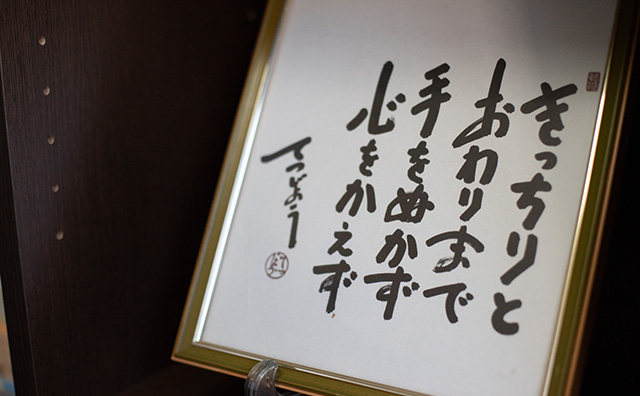 きっちりと
おわりまで
手をぬかず
心をかえず
てつじょう